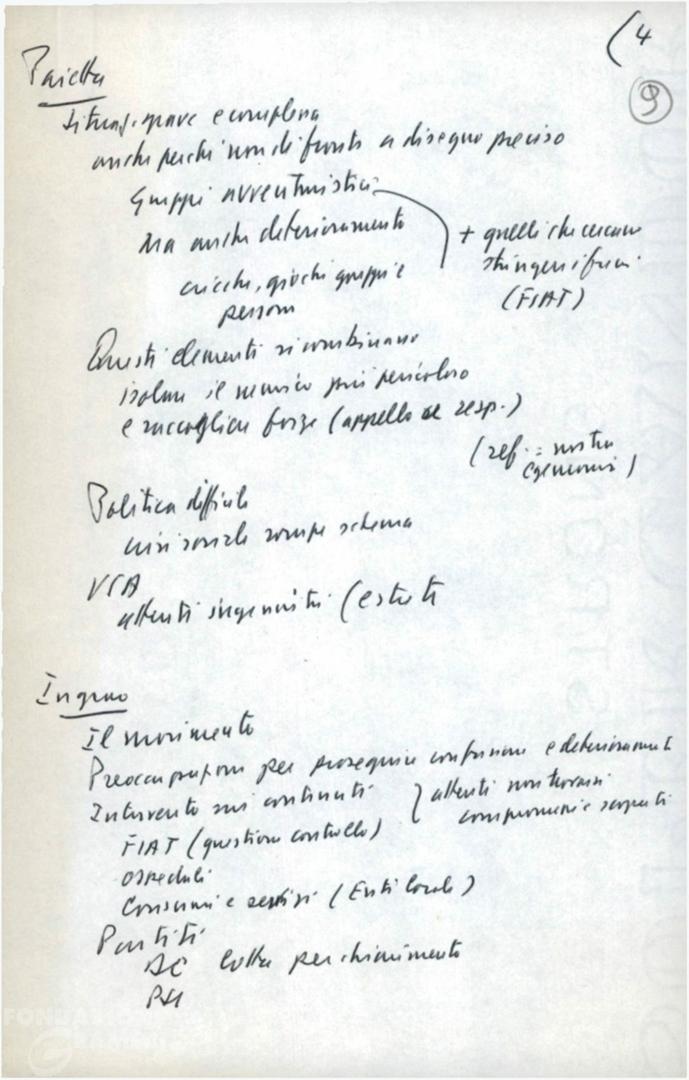 (4
9
Paietta
Situaz. grave e complessa
anche perché non di fronte a disegno preciso
Gruppi avventuristici
Ma anche deterioramento
+ quelli che cercano
stringere i freni
(FIAT)
cricche, giochi gruppi e
persone
Questi elementi si combinano
isolare il nemico più pericoloso
e raccogliere forze (appello resp.)
(rif. = nostra
egemonia)
Politica difficile
crisi sociale rompe schema
USA
attenti ingenuità (estate
Ingrao
Il movimento
Preoccupazioni per proseguire confusione e deterioramento
Intervento sui contenuti
} attenti non trovarsi
compromessi e scavalcati
FIAT (questione controllo)
Ospedali
Consumi e servizi (Enti locali)
Partiti
DC lotta per chiarimento
PSI
FONDAZIONE